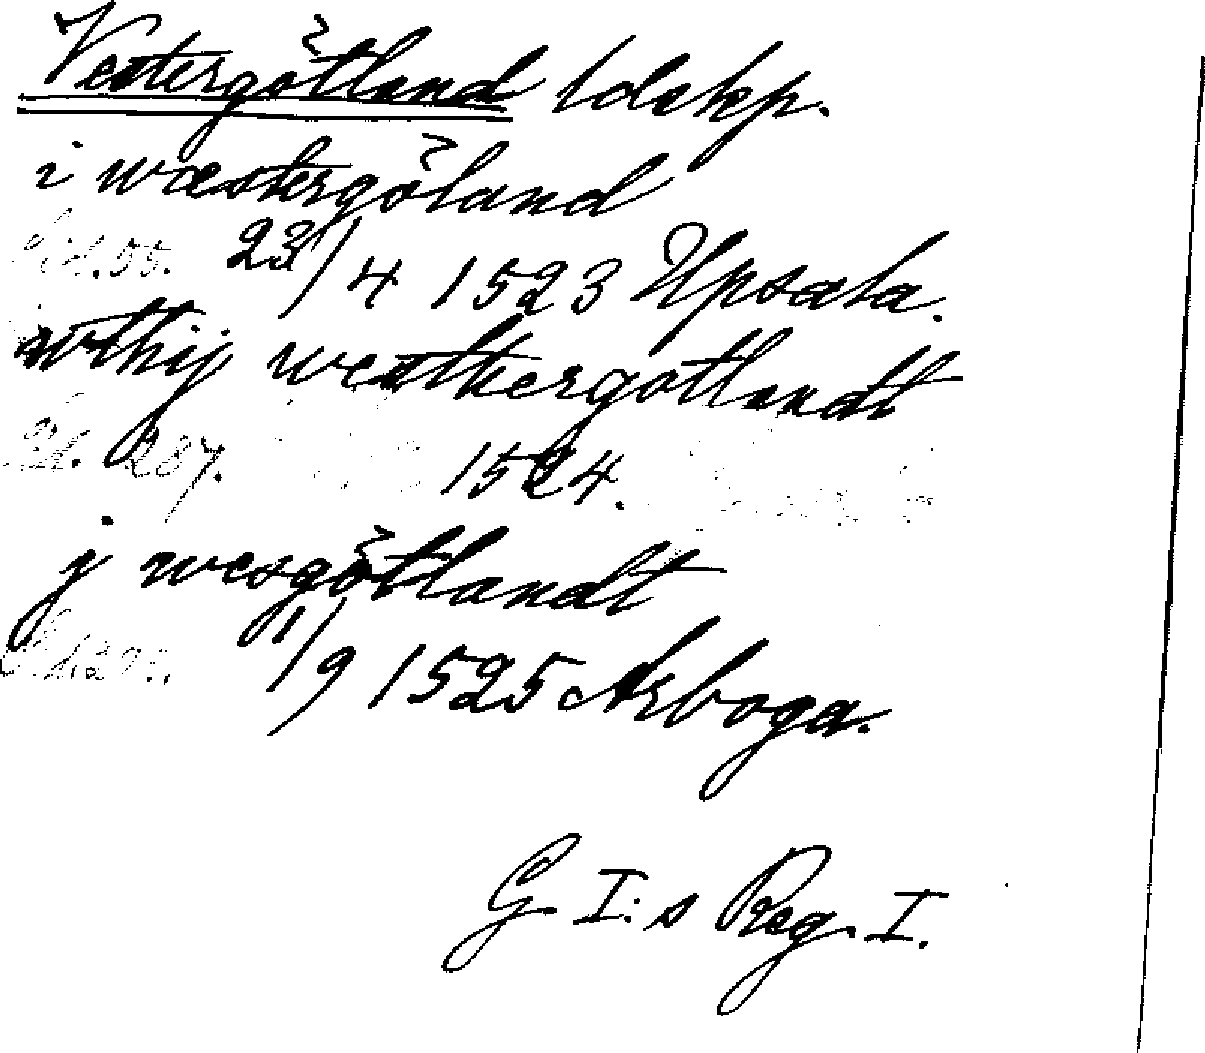 Vestergötland ldskp.
i wæstergöland
s. 55. 23/4 1523 Upsala.
wthij westhergotlandt
s. 287. 1524.
j wesgötlandt
11/9 1525 Arboga.
G I:s Reg. I.